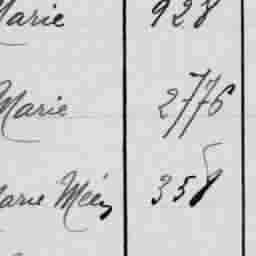 Marie 928
Marie 2776
Marie Méen 358